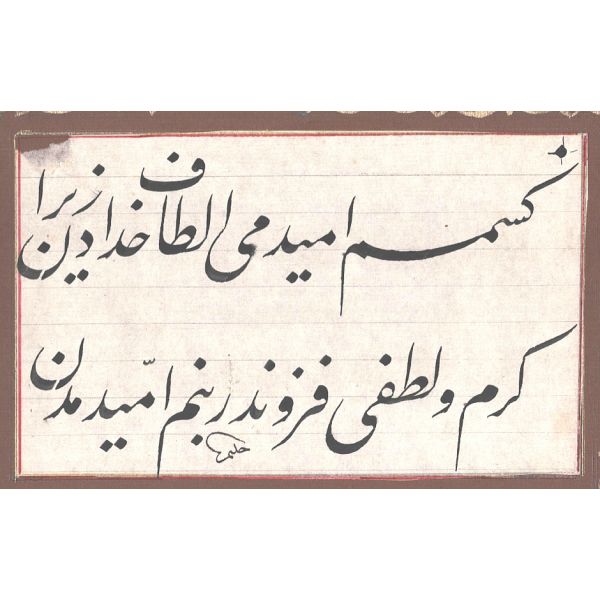 كسمم اميدمى الطاف خدادن زيرا
كرم و لطفى فزوندر بنم امّيدمدن
حليم